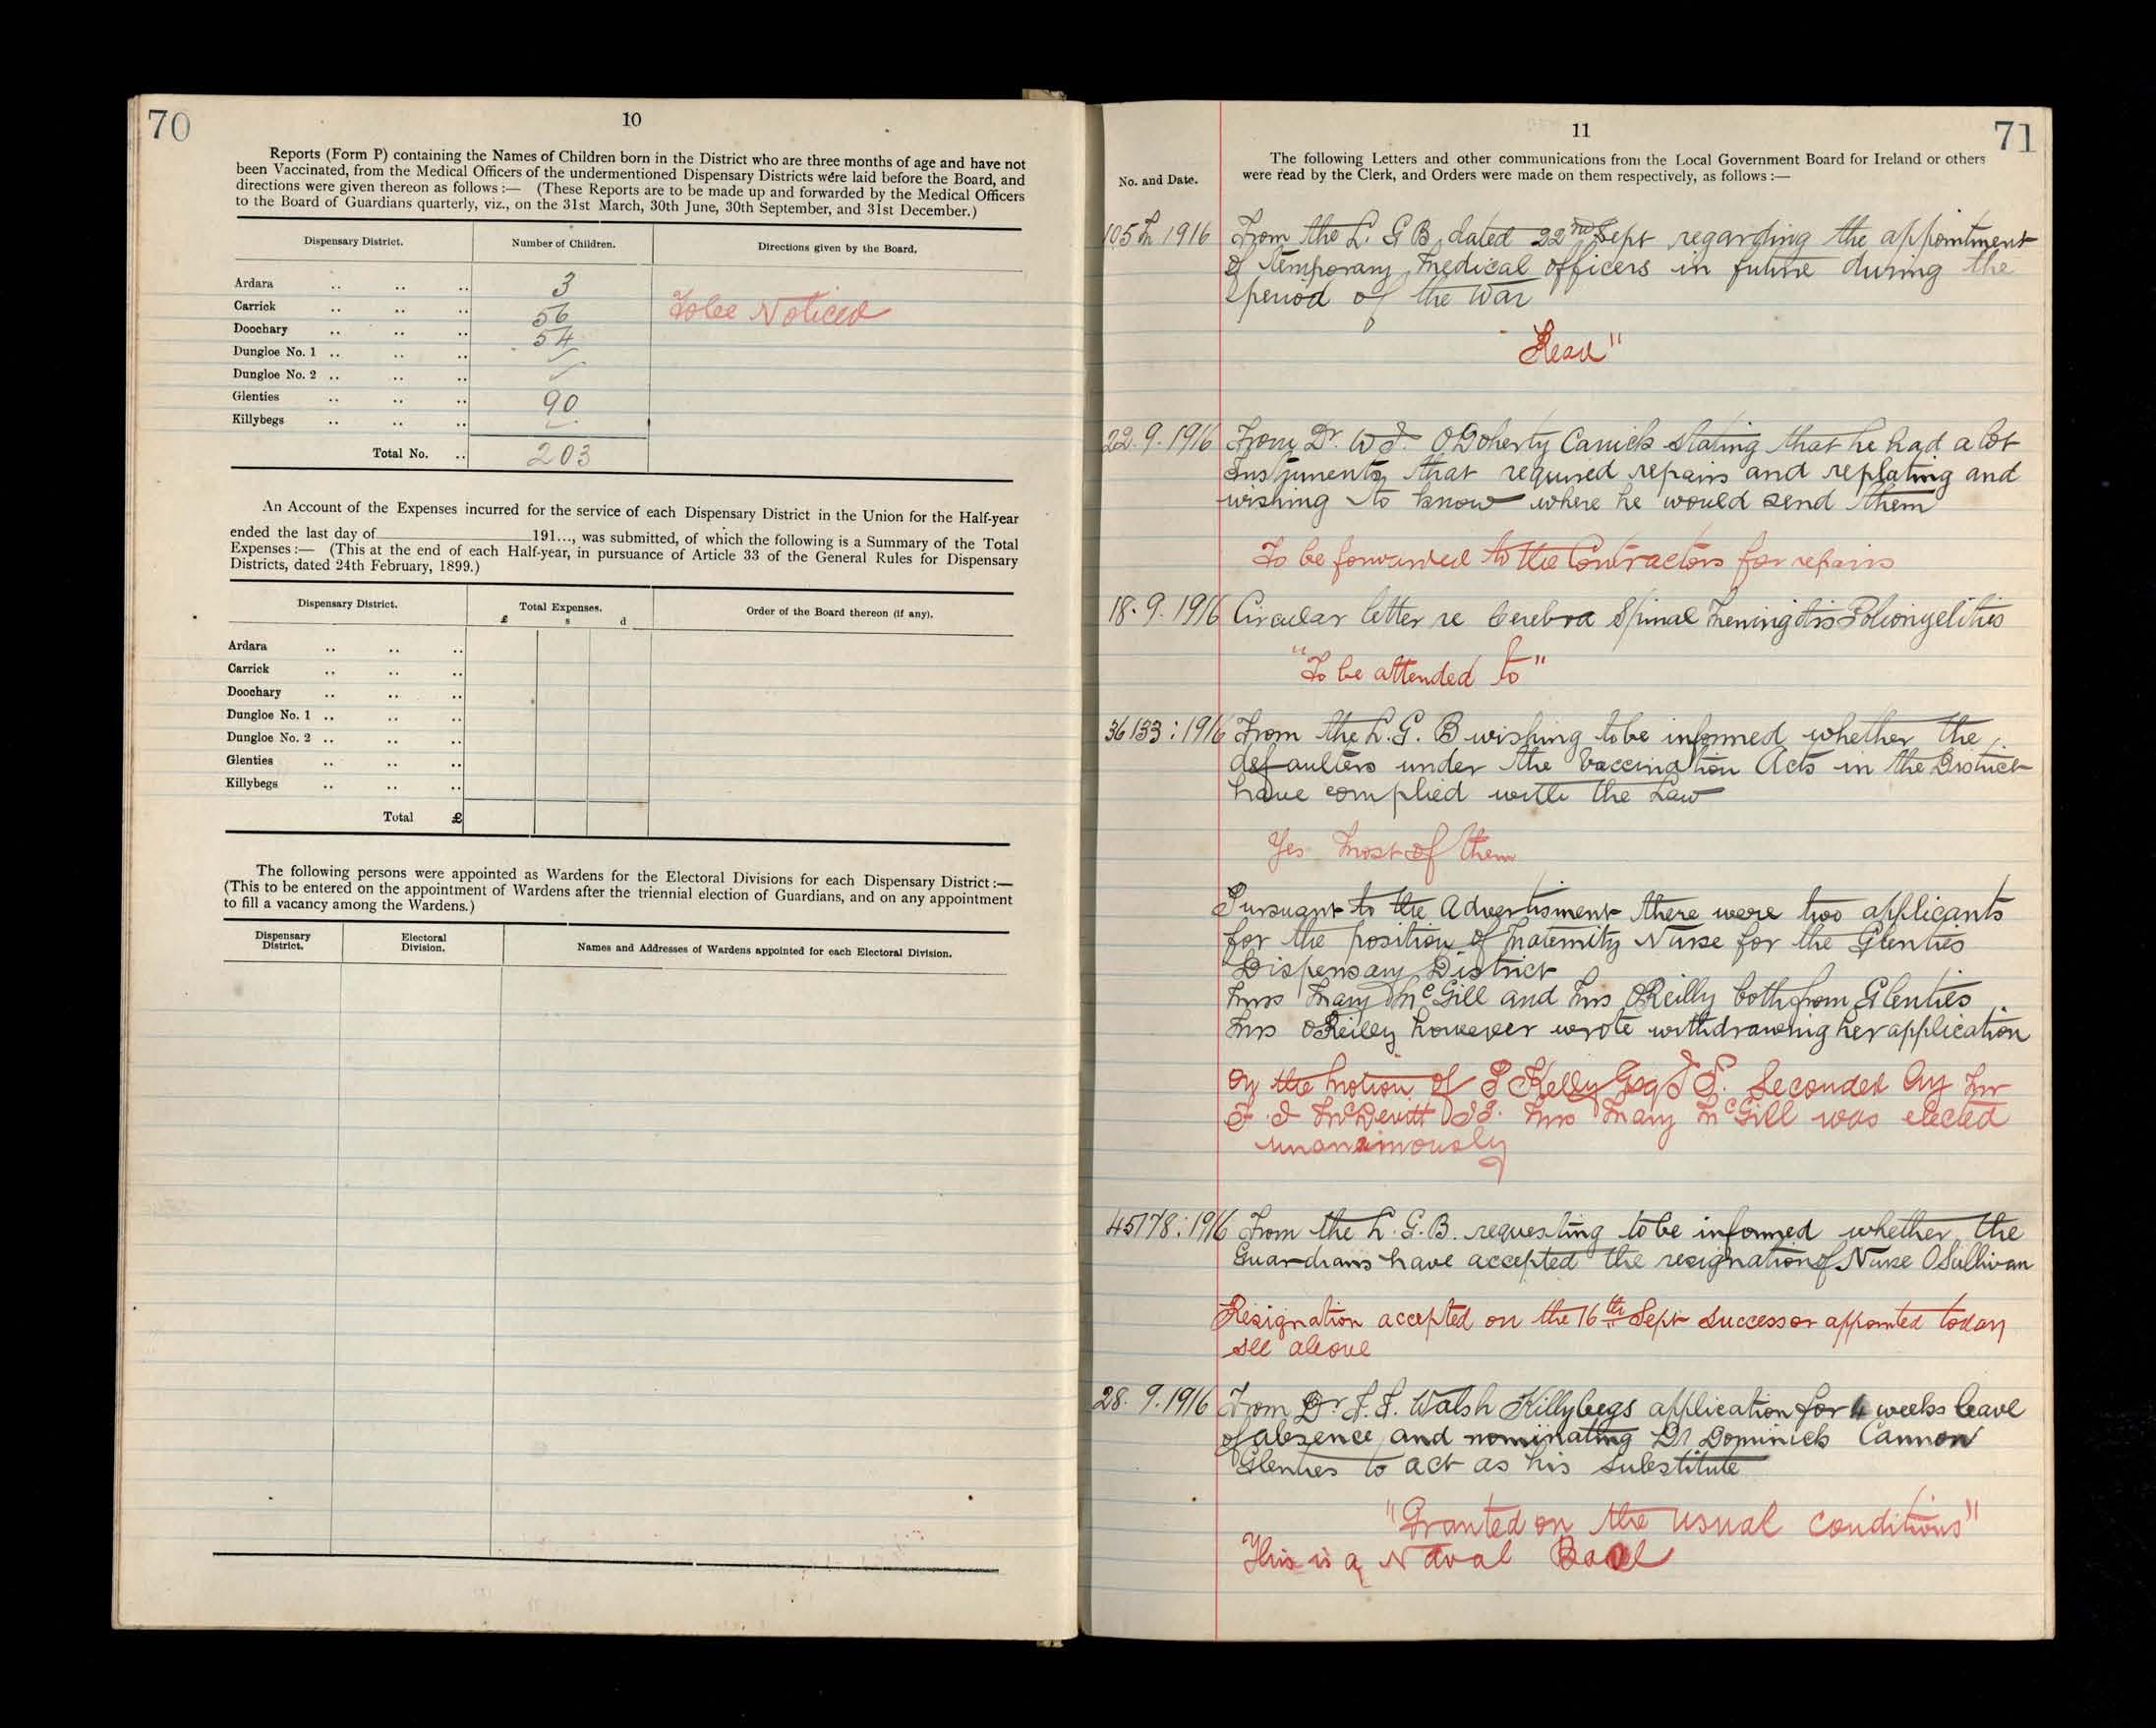 70
10
Reports (Form P) containing the Names of Children born in the District who are three months of age and have not
been Vaccinated, from the Medical Officers of the undermentioned Dispensary Districts were laid before the Board, and
directions were given thereon as follows :— (These Reports are to be made up and forwarded by the Medical Officers
to the Board of Guardians quarterly, viz., on the 31st March, 30th June, 30th September, and 31st December.)
Dispensary District. Number of Children. Directions given by the Board.
Ardara .. .. .. 3
Carrick .. .. .. 56 To be Noticed
Doochary .. .. .. 54
Dungloe No. 1 .. .. ..
Dungloe No. 2 .. .. ..
Glenties .. .. .. 90
Killybegs .. .. ..
Total No. .. 203
An Account of the Expenses incurred for the service of each Dispensary District in the Union for the Half-year
ended the last day of 191..., was submitted, of which the following is a Summary of the Total
Expenses :— (This at the end of each Half-year, in pursuance of Article 33 of the General Rules for Dispensary
Districts, dated 24th February, 1899.)
Dispensary District. Total Expenses. Order of the Board thereon (if any).
£ s d
Ardara .. .. ..
Carrick .. .. ..
Doochary .. .. ..
Dungloe No. 1 .. .. ..
Dungloe No. 2 .. .. ..
Glenties .. .. ..
Killybegs .. .. ..
Total £
The following persons were appointed as Wardens for the Electoral Divisions for each Dispensary District :—
(This to be entered on the appointment of Wardens after the triennial election of Guardians, and on any appointment
to fill a vacancy among the Wardens.)
Dispensary District. Electoral Division. Names and Addresses of Wardens appointed for each Electoral Division.
11
71
No. and Date.
The following Letters and other communications from the Local Government Board for Ireland or others
were read by the Clerk, and Orders were made on them respectively, as follows :—
1916 From the L. G B dated 22nd Sept regarding the appointment
of temporary Medical officers in future during the
period of the War
"Read"
22.9.1916 From Dr. W J. O'Doherty Carrick stating that he had a lot
Instruments that required repairs and replating and
wishing to know where he would send them
To be forwarded to the Contractors for repairs
18.9.1916 Circular letter re Cerebra Spinal Meningitis
"To be attended to"
36133:1916 From the L. G. B wishing to be informed whether the
defaulters under the Vaccination Acts in the District
have complied with the Law
Yes Most of them
Pursuant to the Advertisment there were two applicants
for the position of Maternity Nurse for the Glenties
Dispensary District
Mrs Mary McGill and Mrs O'Reilly both from Glenties
Mrs O'Reilly however wrote withdrawing her application
On the motion of P Kelly Esq J P. Seconded by Mr
McDevitt Mrs Mary McGill was elected
unanaimously
45178:1916 From the L. G. B. requesting to be informed whether the
Guardians have accepted the resignation of Nurse O'Sullivan
Resignation accepted on the 16th Sept Successor appointed today
see above
28.9.1916 From Dr J. F. Walsh Killybegs application for 4 weeks leave
of absence and nominating Dr Dominick Cannon
Glenties to act as his substitute
"Granted on the usual conditions"
This is a Naval Base